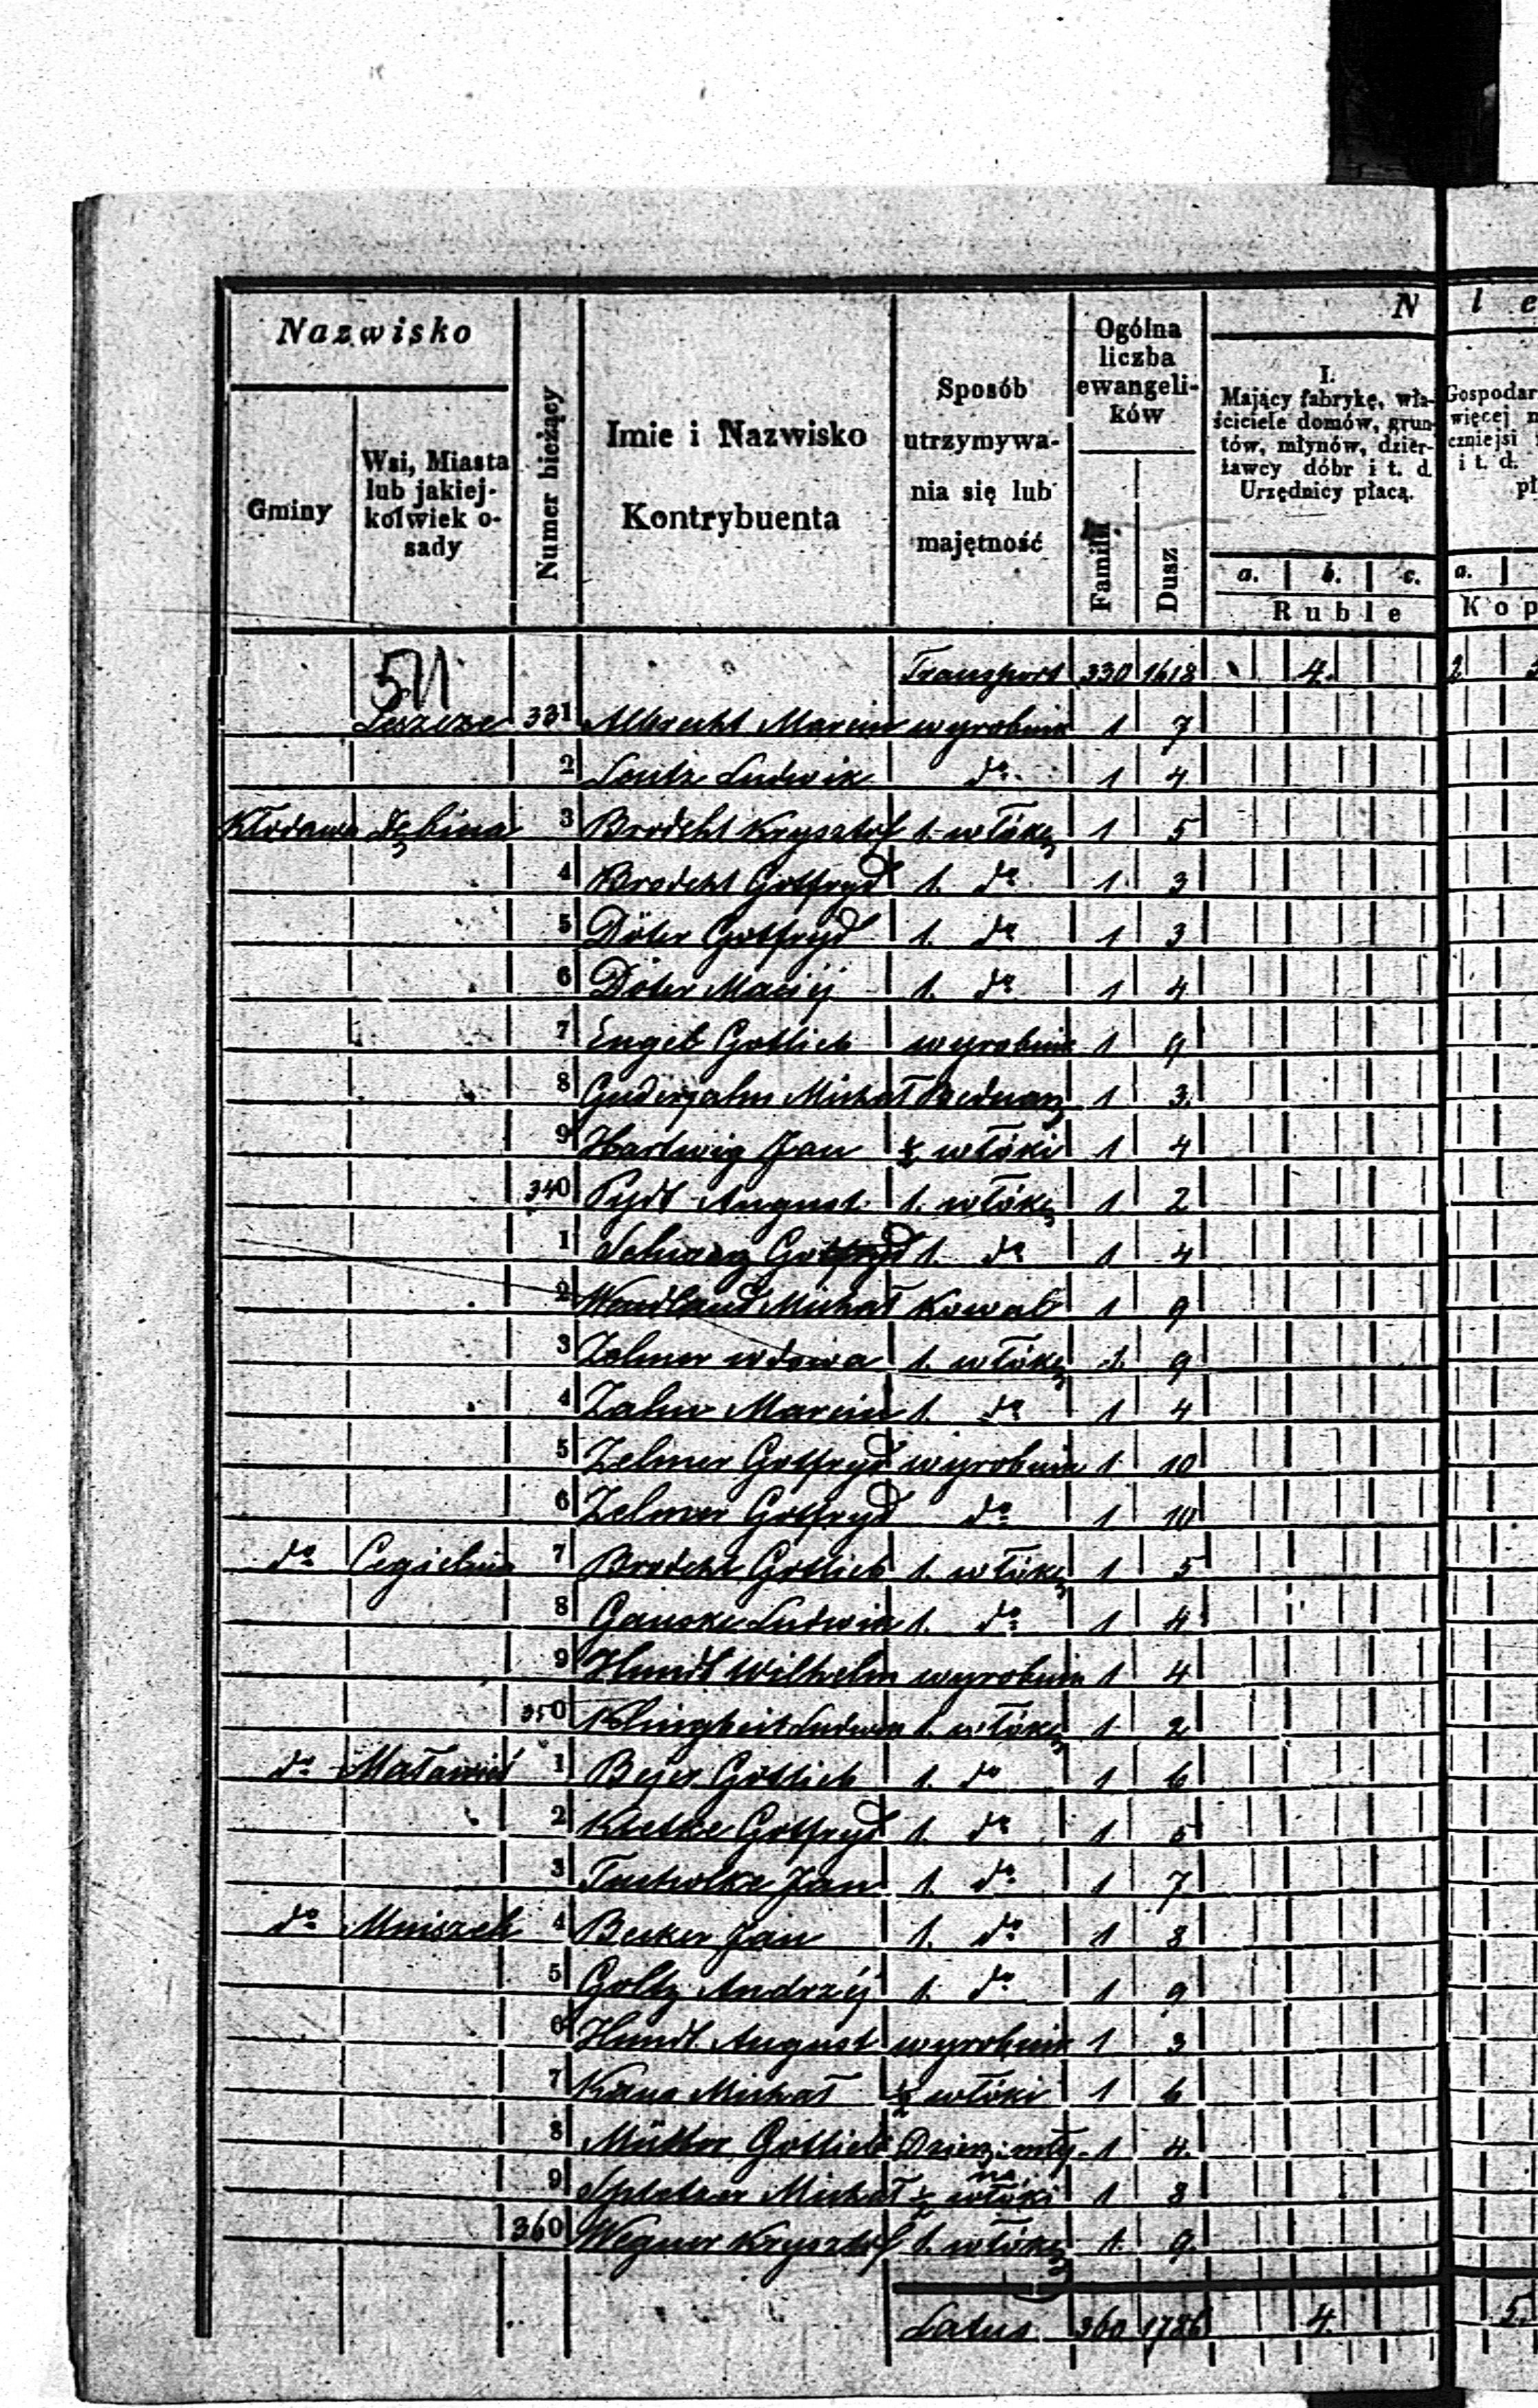 Nazwisko
Gminy
Wsi, Miasta
lub jakiej-
kolwiek o-
sady
Numer bieżący
Imie i Nazwisko
Kontrybuenta
Sposób
utrzymywa-
nia się lub
majętność
Ogólna
liczba
ewangeli-
ków
Familii
Dusz
N
I.
Mający fabrykę, wła-
ściciele domów, grun-
tów, młynów, dzier-
żawcy dóbr i t. d.
Urzędnicy płacą.
a. b. c.
Ruble
l e
Gospodar
więcej n
czniejsi
i t. d.
pł
a.
Kop
571
Transport 330 1618 4. 2
Leszcze 331 Albrecht Marcin wyrobnik 1 7
2 Lentz Ludwik do 1 4
Kłodawa Dębina 3 Brodcht Krysztof 1. włókę 1 5
4 Brodcht Gottfryd 1. do 1 3
5 Döter Gottfryd 1. do 1 3
6 Döter Maciij 1. do 1 4
7 Engel Gotlieb wyrobnik 1 9
8 Guderjahn Michał Bednarz 1 3.
9 Hartwig Jan ½ włóki 1 4
340 Pydt August 1. włókę 1 2
1 Schwarz Gottfryd 1. do 1 4
2 Wendland Michał Kowal 1 9
3 Zelmer wdowa 1. włókę 1. 9
4 Marcin 1. do 1 4
5 Zelmer Gottfryd wyrobnik 1 10
6 Zelmer Gottfryd do 1 10
do Cegielnia 7 Brodcht Gottlieb 1. włókę 1 5
8 Ganske Ludwik 1. do 1 4
9 Hundt Wilhelm wyrobnik 1 4
350 Klingbeil Ludwik 1. włókę 1 2
do Maławieś 1 Bejer Gottlieb 1. do 1 6
2 Klatke Gottfryd 1. do 1
3 Tucholke Jan 1. do 1 7
do Mniszek 4 Becker Jan 1. do 1 8
5 Goltz Andrzéj 1. do 1 9
6 Hundt August wyrobnik 1 3
7 Michał ½ włóki 1 6
8 Müller Gottlieb Dzierż. mły- 1 4.
na
9 Michał ½ włóki 1 8
360 Wegner Krysztof 1. włókę 1. 9.
Latus 360 1786 4. 5.